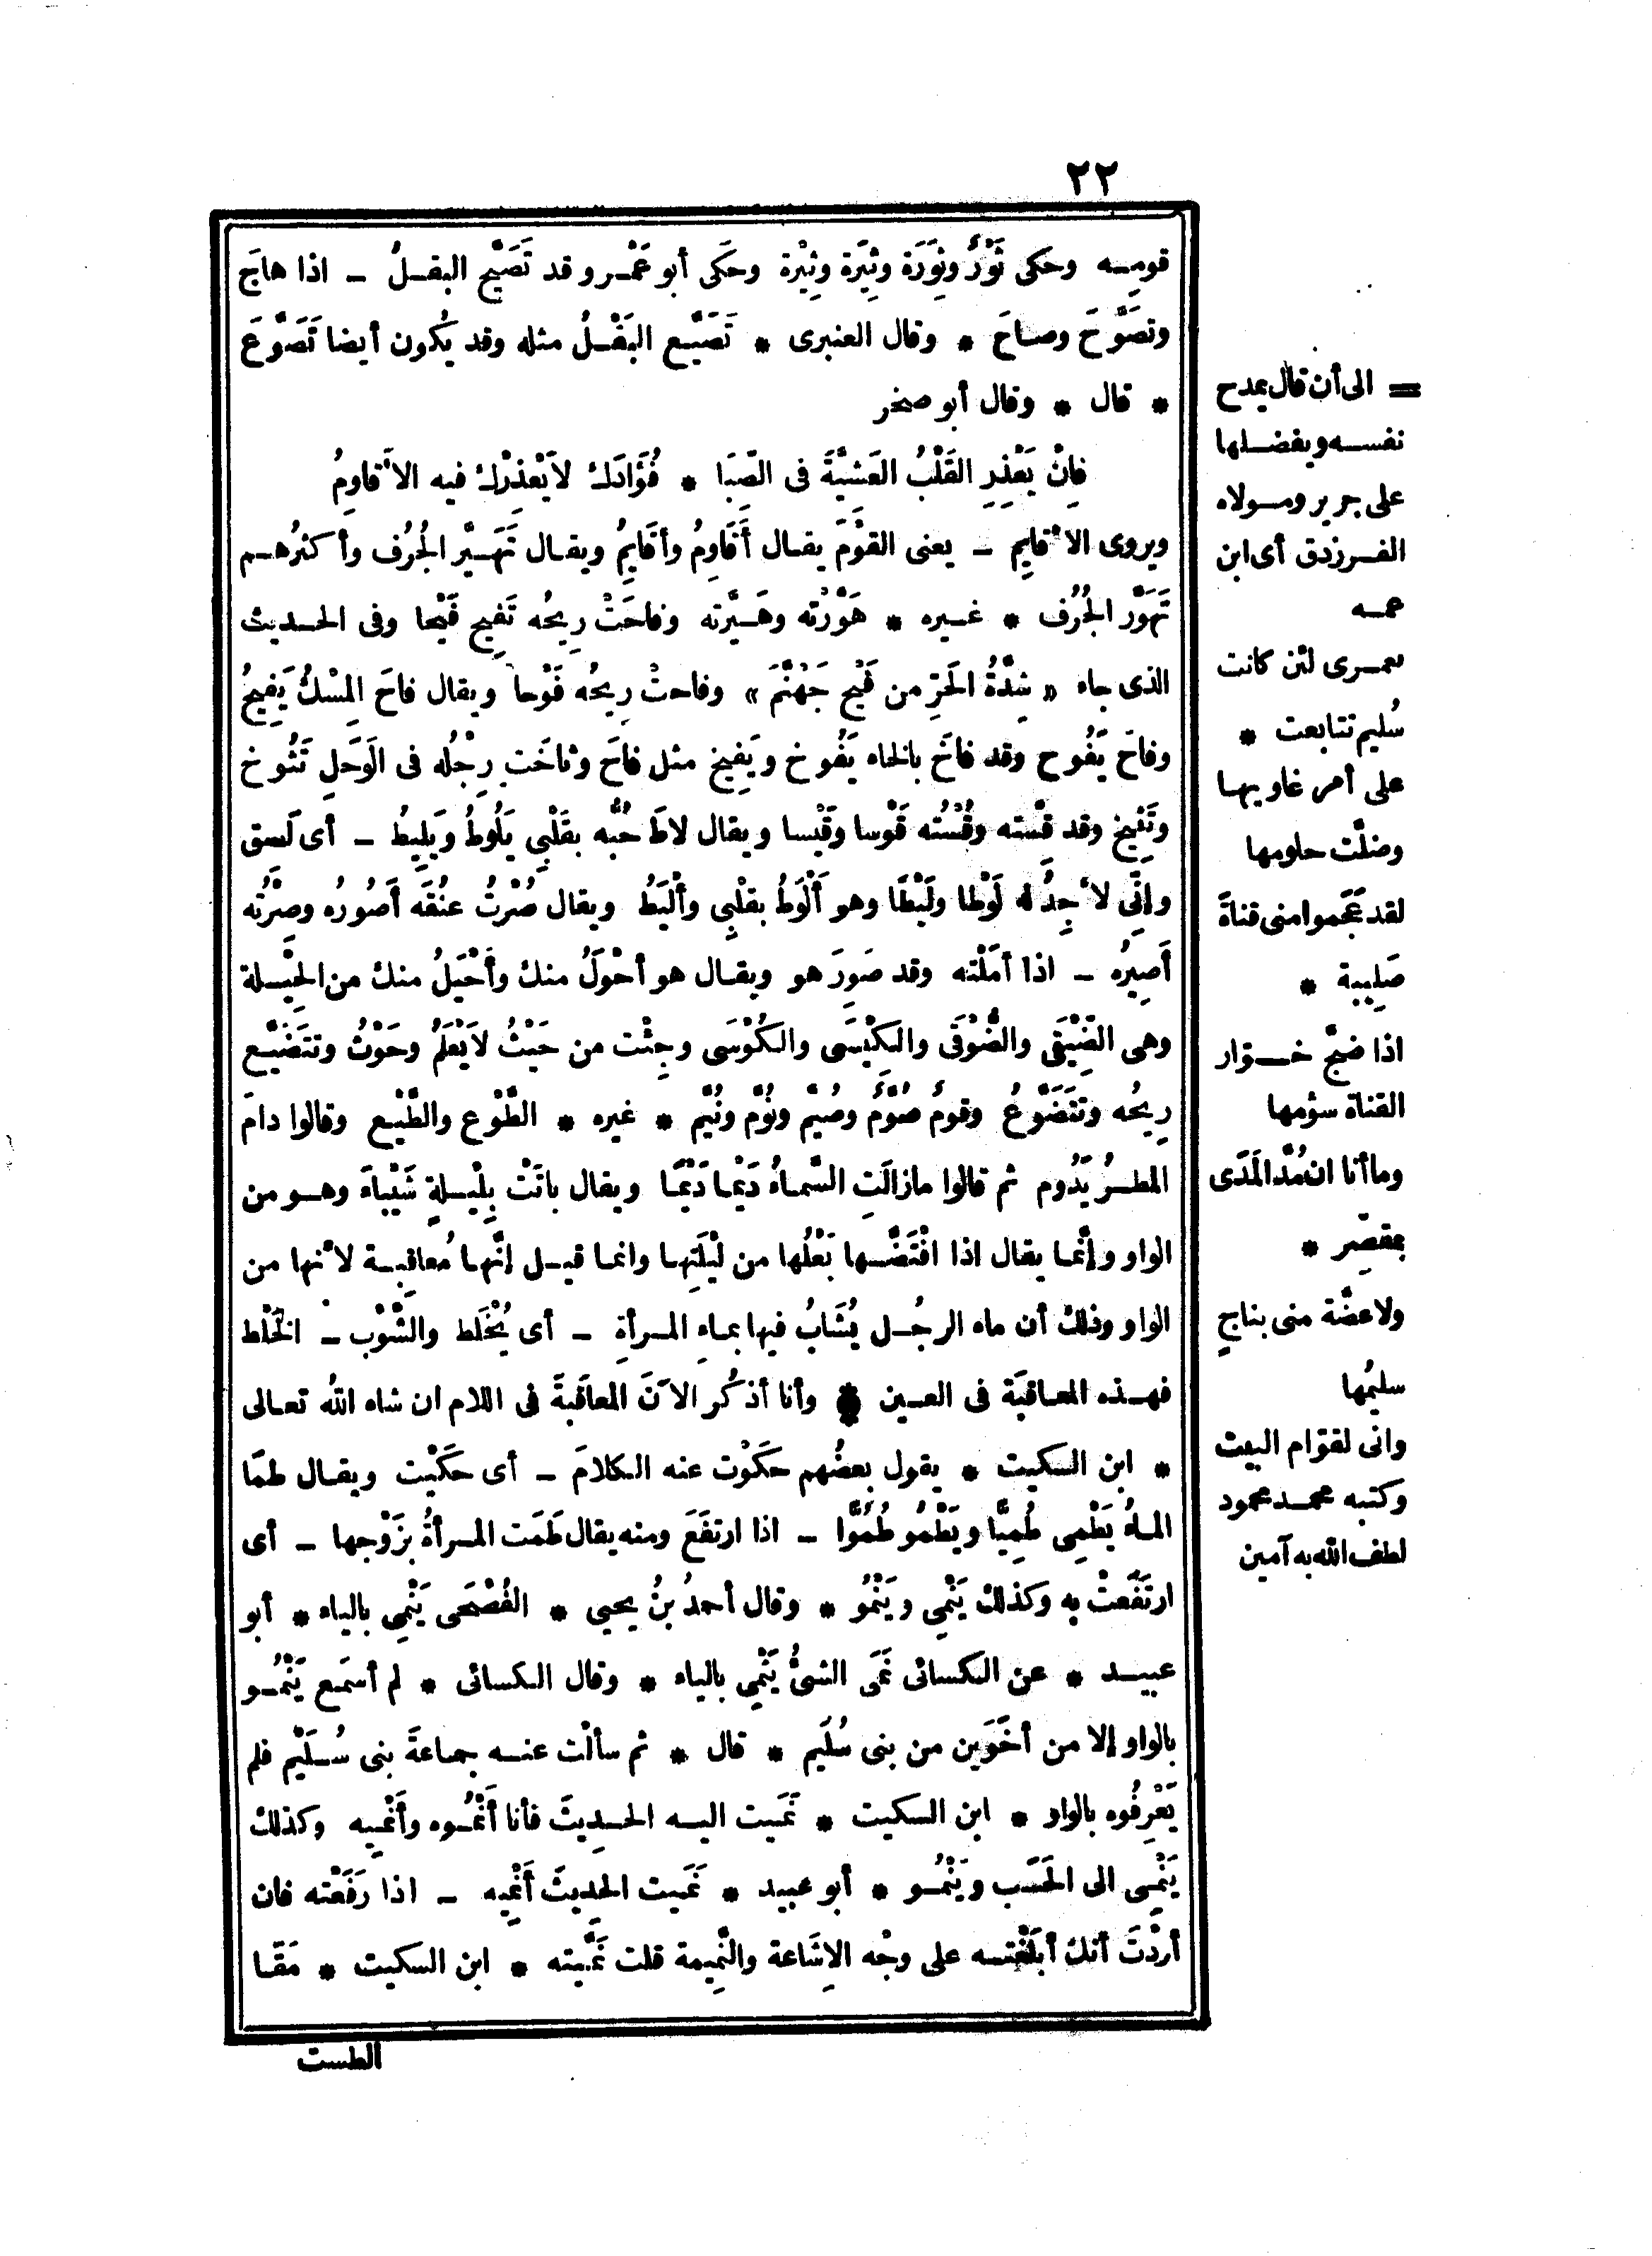 ٢٢
قومه وحكى ثَوْرٌ وثِوَرَة وثِيَرَة وثِيْرة وحَكَى أبو عَمْرو قد تَصَيَّح البقلُ - اذا هاجَ
وتصَوَّحَ وصاحَ * وقال العنبرى * تَصَيَّع البَقْلُ مثله وقد يكُون أيضا تَصَوَّعَ
* قال * وقال أبو صخر
فانْ يَعْذِرِ القَلْبُ العَشِيَّةَ فى الصِّبَا * فُؤَادَكَ لايَعْذِرْكَ فيه الأَقاوِمُ
ويروى الأقايِم - يعنى القوْمَ يقال أَقَاوِمُ وأقَايِمُ ويقال تَهَيَّر الجُرُف وأكثرُهم
تَهَوَّر الجُرُف * غيره * هَوَّرْته وهَيَّرته وفاحَتْ رِيحُه تَفيح فَيْحا وفى الحديث
الذى جاء «شِدَّةُ الحَرِّ من فَيْح جَهَنَّمَ» وفاحتْ رِيحُه فَوْحا ويقال فاحَ المِسْكُ يَفِيحُ
وفاحَ يَفُوح وقد فاخَ بالخاء يَفُوخ ويَفِيخ مثل فاحَ وثاخَت رِجْلُه فى الوَحَلِ تَثُوخ
وتَثِيخ وقد قِسْته وقُسْتُه قَوْسا وقَيْسا ويقال لاطَ حُبُّه بقَلْبِي يَلُوطُ ويَلِيطُ - أى لَصِق
وإنّى لأجِدُ له لَوْطا ولَيْطًا وهو أَلْوَطُ بقلْبِى وألْيَطُ ويقال صُرْتُ عنُقَه أَصُورُه وصِرْتُه
أَصِيرُه - اذا أمَلْته وقد صَوِرَ هو ويقال هو أحْوَلُ منك وأَحْيَلُ منك من الحِيْلة
وهى الضِّيْقَى والضُّوْقَى والكِيْسَى والكُوْسَى وجِئْت من حَيْثُ لايَعْلَمُ وحَوْثُ وتتَضَيَّع
رِيحُه وتَتَضَوَّعُ وقومٌ صُوَّمٌ وصُيَّم ونُوَّم ونُيَّم * غيره * الطَّوْع والطَّيْع وقالوا دامَ
المطرُ يَدُوم ثم قالوا مازالَتِ السَّماءُ دَيْما دَيْمًا ويقال باتَتْ بِلَيْلةِ شَيْبَاءَ وهو من
الواو وإنَّما يقال اذا افْتَضَّها بَعْلُها من لَيْلَتِها وانما قيل إنَّها مُعاقِبة لأنها من
الواو وذلك أن ماء الرجُل يُشَابُ فيها بماءِ المرأةِ - أى يُخْلَط والشَّوْب - الخَلْط
فهذه المعاقبَة فى العين * وأنا أذكُر الآنَ المعاقَبةَ فى اللام ان شاء اللهُ تعالى
* ابن السكيت * يقول بعضُهم حكَوْت عنه الكلامَ - أى حكَيْت ويقال طمَا
الماءُ يَطْمِى طُمِيًّا ويَطْمُو طُمُوًّا - اذا ارتفَعَ ومنه يقال طَمَت المرأةُ بزَوْجها - أى
ارتَفَعتْ به وكذلك يَنْمِى ويَنْمُو * وقال أحمدُ بنُ يحيى * الفُصْحَى يَنْمِى بالياء * أبو
عبيد * عن الكسائى نَمَى الشىُّ يَنْمِى بالياء * وقال الكسائى * لم أسمَع يَنْمُو
بالواو إلا من أخَوَين من بنى سُلَيم * قال * ثم سألْت عنه جماعةَ بنى سُلَيْم فلم
يَعْرِفُوه بالواو * ابن السكيت * نَمَيت اليه الحدِيثَ فأنا أَنْمُوه وأَنْمِيه وكذلك
يَنْمِى الى الحَسَب ويَنْمُو * أبو عبيد * نَمَيت الحديثَ أَنْمِيه - اذا رَفَعْته فان
أردْتَ أنك أبلَغْته على وجْه الإشَاعة والنَّمِيمة قلت نَمَّيته * ابن السكيت * مَقَا
الطست
= الى أن قال يمدح
نفسه ويفضلها
على جرير ومولاه
الفرزدق أى ابن
عمه
لعمرى لئن كانت
سُليم تتابعت *
على أمر غاويها
وضلَّت حلومها
لقد عَجَموا منى قناةً
صَلِيبة *
اذا ضجَّ خوّار
القناة سؤمها
وما أنا ان مُدَّ المَدَى
بمقصّر *
ولا عضَّة منى بناجٍ
سليمُها
وانى لقوّام البيت
وكتبه محمد محمود
لطف الله به آمين